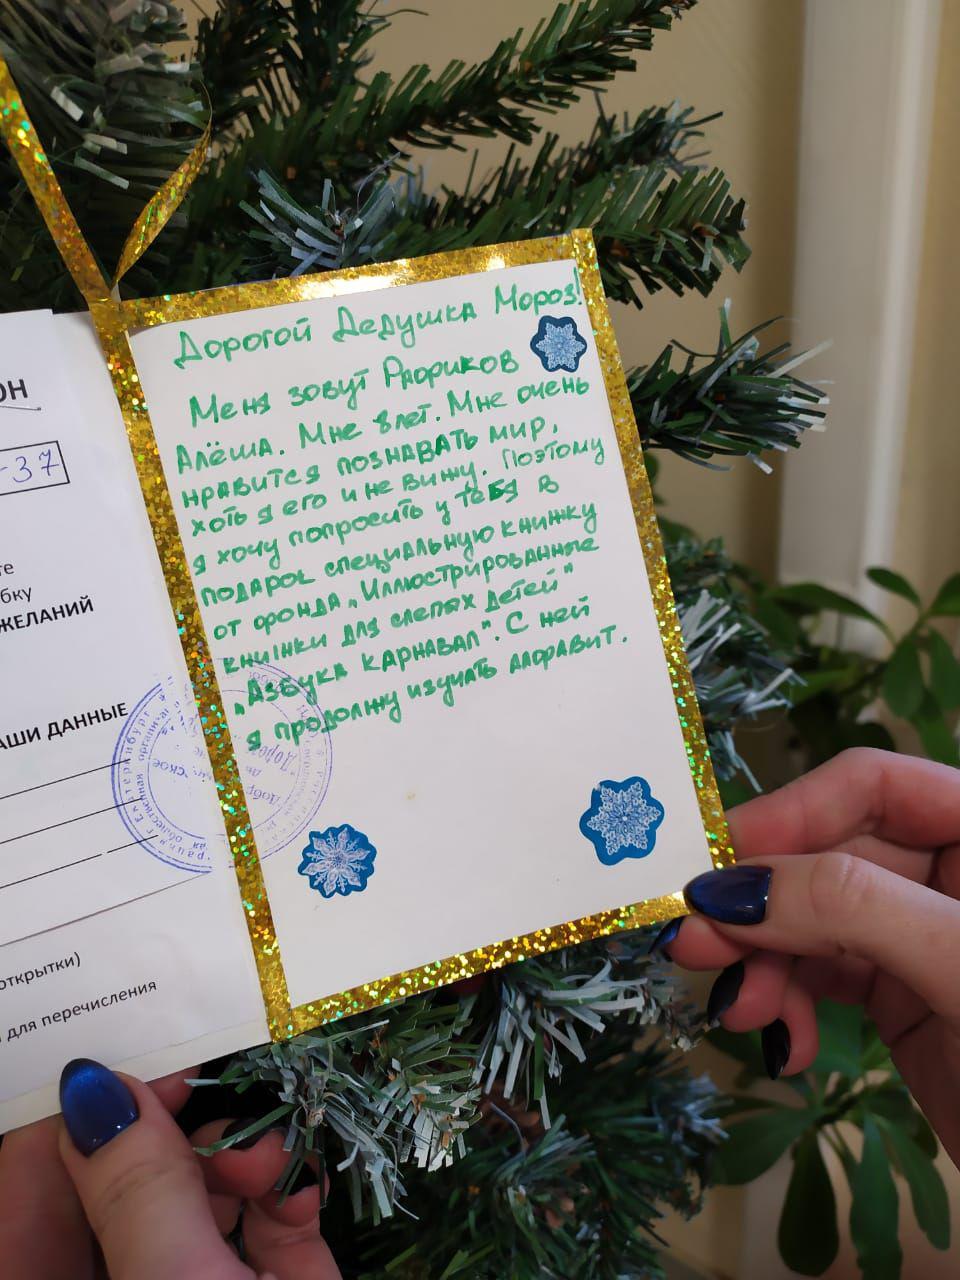 ОН
-37
те
бку
ЖЕЛАНИЙ
АШИ ДАННЫЕ
открытки)
для перечисления
Дорогой Дедушка Мороз!
Меня зовут
Алёша. Мне 8 лет. Мне очень
нравится познавать мир,
хоть я его и не вижу. Поэтому
я хочу попросить у тебя в
подарок специальную книжку
от фонда „Иллюстрированные
книжки для слепых детей"
„Азбука карнавал". С ней
я продолжу изучать алфавит.
г. Екатеринбург
общественная организа